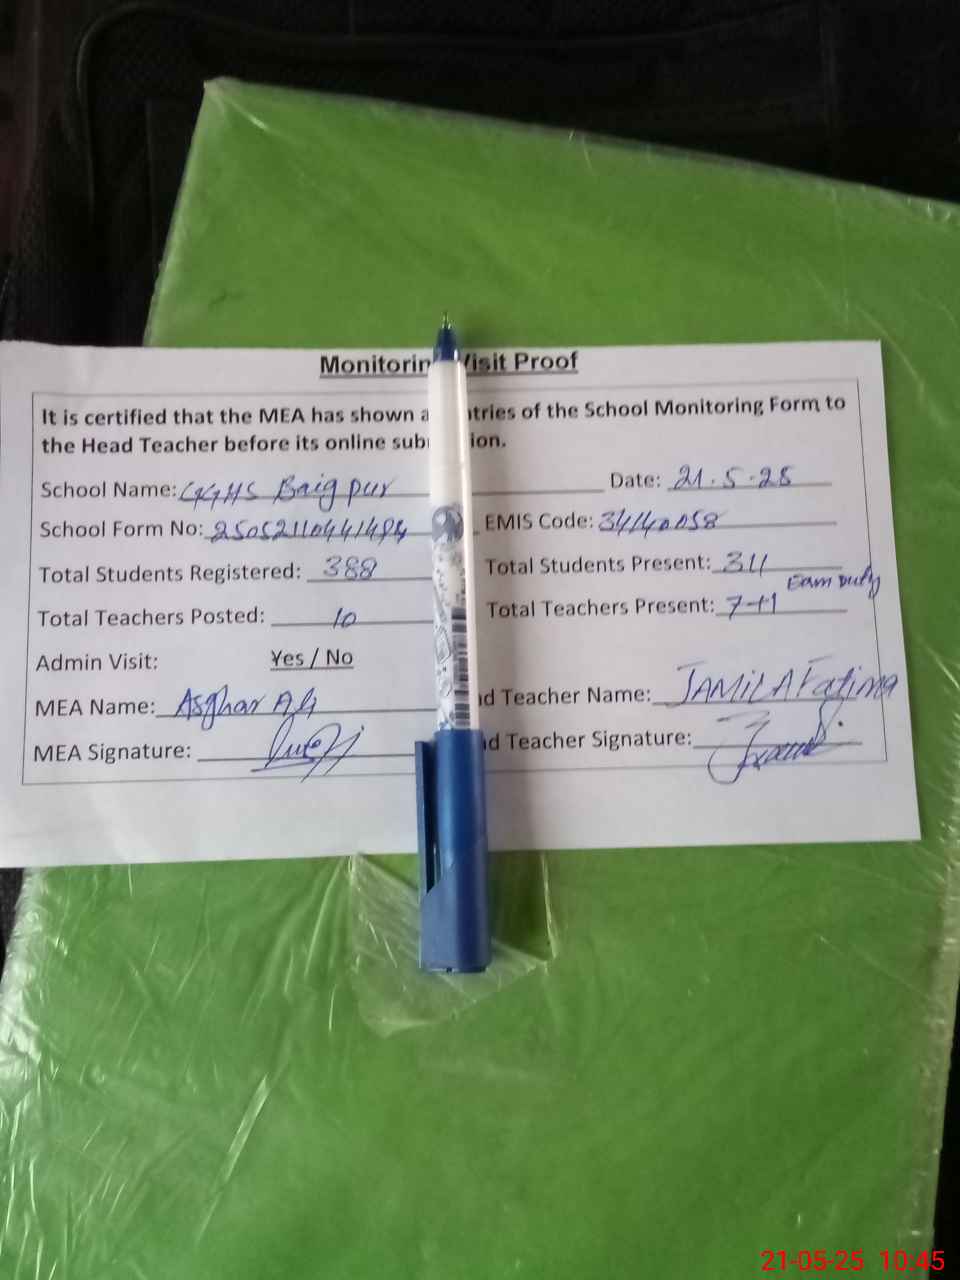 Monitorin Visit Proof
It is certified that the MEA has shown a ntries of the School Monitoring Form to
the Head Teacher before its online sub ion.
School Name: GGHS Baigpur Date: 21.5.25
School Form No: 25052110441494 EMIS Code: 34140058
Total Students Registered: 388 Total Students Present: 311
Total Teachers Posted: 10 Total Teachers Present: 7+1 Eam Duty
Admin Visit: Yes / No
MEA Name: Asghar Ali d Teacher Name: JAMILA Fatima
MEA Signature: d Teacher Signature:
21-05-25 10:45